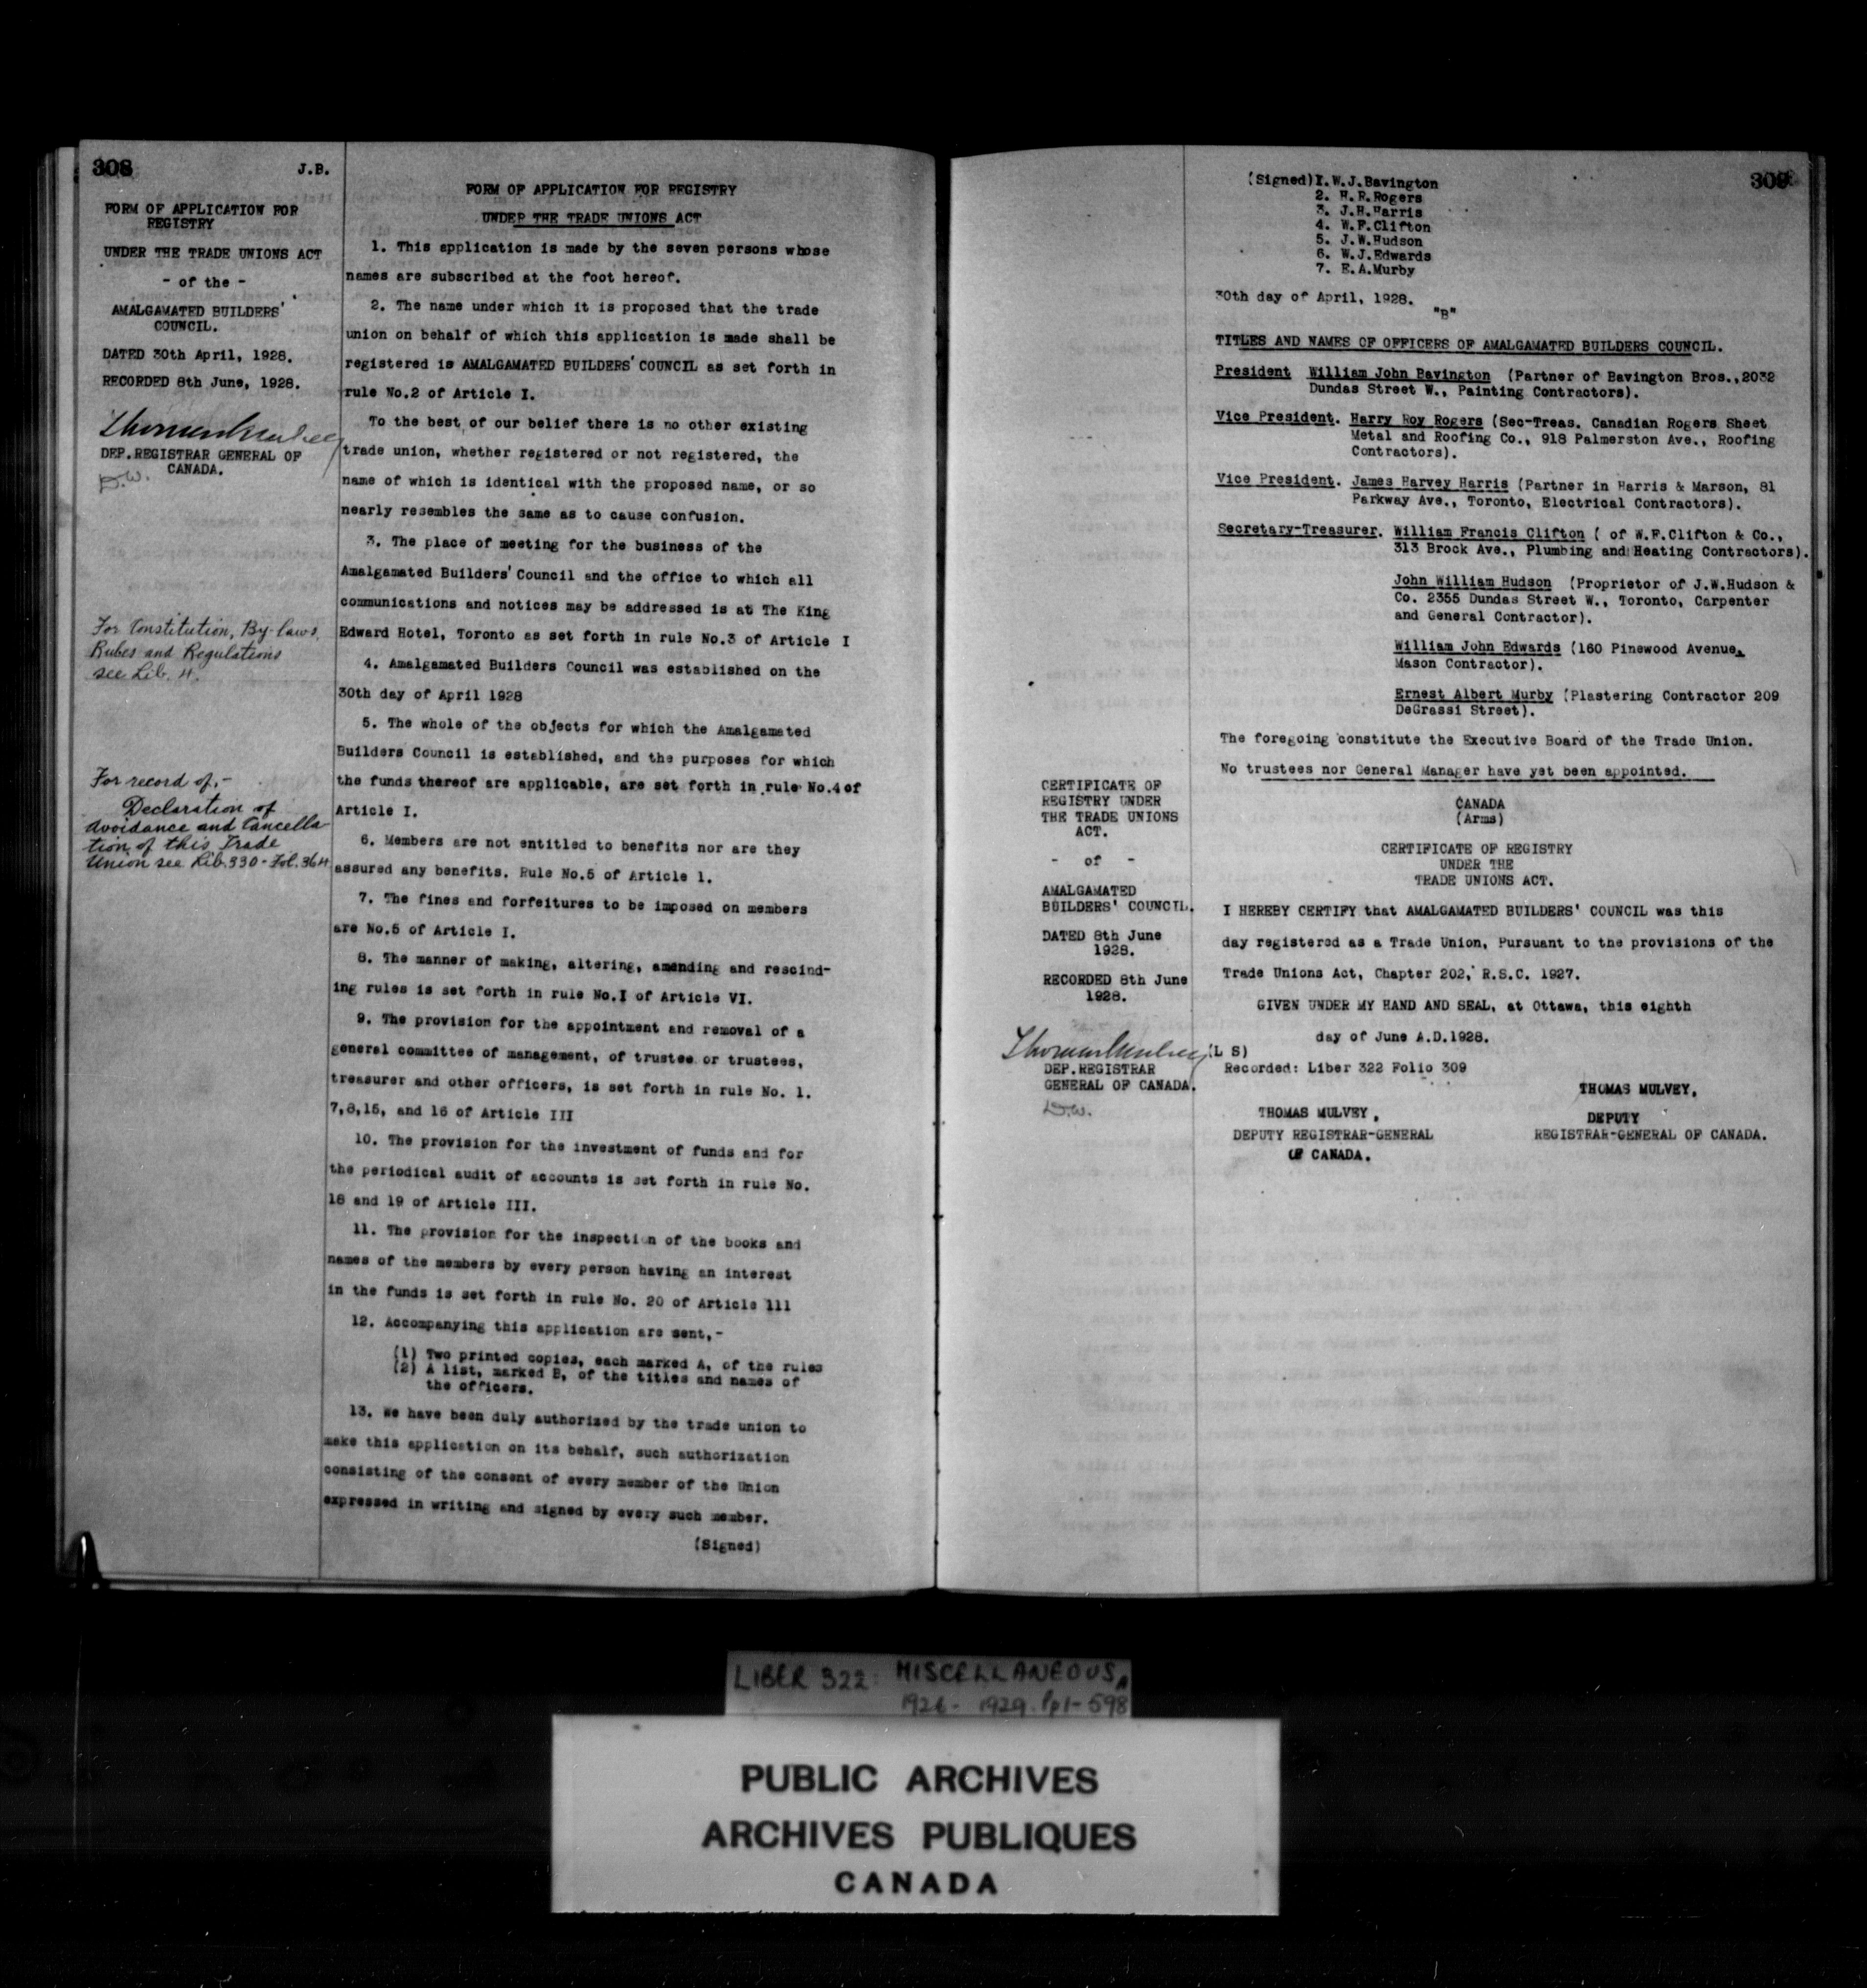 308
J.B.
FORM OF APPLICATION FOR
REGISTRY
UNDER THE TRADE UNIONS ACT
- of the -
AMALGAMATED BUILDERS'
COUNCIL.
DATED 30th April, 1928.
RECORDED 8th June, 1928.
Thomas Mulvey
DEP.REGISTRAR GENERAL OF
CANADA.
D.W.
For Constitution, By-laws,
Rules and Regulations
see Lib. 4.
For record of,-
Declaration of
Avoidance and Cancella-
tion of this Trade
Union see Lib. 330 - Fol. 364
FORM OF APPLICATION FOR REGISTRY
UNDER THE TRADE UNIONS ACT
1. This application is made by the seven persons whose
names are subscribed at the foot hereof.
2. The name under which it is proposed that the trade
union on behalf of which this application is made shall be
registered is AMALGAMATED BUILDERS' COUNCIL as set forth in
rule No.2 of Article I.
To the best of our belief there is no other existing
trade union, whether registered or not registered, the
name of which is identical with the proposed name, or so
nearly resembles the same as to cause confusion.
3. The place of meeting for the business of the
Amalgamated Builders' Council and the office to which all
communications and notices may be addressed is at The King
Edward Hotel, Toronto as set forth in rule No.3 of Article I
4. Amalgamated Builders Council was established on the
30th day of April 1928
5. The whole of the objects for which the Amalgamated
Builders Council is established, and the purposes for which
the funds thereof are applicable, are set forth in rule No.4 of
Article I.
6. Members are not entitled to benefits nor are they
assured any benefits. Rule No.5 of Article 1.
7. The fines and forfeitures to be imposed on members
are No.5 of Article I.
8. The manner of making, altering, amending and rescind-
ing rules is set forth in rule No.I of Article VI.
9. The provision for the appointment and removal of a
general committee of management, of trustee or trustees,
treasurer and other officers, is set forth in rule No. 1.
7,8,15, and 16 of Article III
10. The provision for the investment of funds and for
the periodical audit of accounts is set forth in rule No.
18 and 19 of Article III.
11. The provision for the inspection of the books and
names of the members by every person having an interest
in the funds is set forth in rule No. 20 of Article 111
12. Accompanying this application are sent,-
(1) Two printed copies, each marked A, of the rules
(2) A list, marked B, of the titles and names of
the officers.
13. We have been duly authorized by the trade union to
make this application on its behalf, such authorization
consisting of the consent of every member of the Union
expressed in writing and signed by every such member.
(Signed)
309
(Signed)1. W.J.Bavington
2. H.R.Rogers
3. J.H.Harris
4. W.F.Clifton
5. J.W.Hudson
6. W.J.Edwards
7. E.A.Murby
30th day of April, 1928.
"B"
TITLES AND NAMES OF OFFICERS OF AMALGAMATED BUILDERS COUNCIL.
President William John Bavington (Partner of Bavington Bros.,2032
Dundas Street W., Painting Contractors).
Vice President. Harry Roy Rogers (Sec-Treas. Canadian Rogers Sheet
Metal and Roofing Co., 918 Palmerston Ave., Roofing
Contractors).
Vice President. James Harvey Harris (Partner in Harris & Marson, 81
Parkway Ave., Toronto, Electrical Contractors).
Secretary-Treasurer. William Francis Clifton ( of W.F.Clifton & Co.,
313 Brock Ave., Plumbing and Heating Contractors).
John William Hudson (Proprietor of J.W.Hudson &
Co. 2355 Dundas Street W., Toronto, Carpenter
and General Contractor).
William John Edwards (160 Pinewood Avenue,
Mason Contractor).
Ernest Albert Murby (Plastering Contractor 209
DeGrassi Street).
The foregoing constitute the Executive Board of the Trade Union.
No trustees nor General Manager have yet been appointed.
CERTIFICATE OF
REGISTRY UNDER
THE TRADE UNIONS
ACT.
- of -
AMALGAMATED
BUILDERS' COUNCIL.
DATED 8th June
1928.
RECORDED 8th June
1928.
Thomas Mulvey
DEP.REGISTRAR
GENERAL OF CANADA.
D.W.
CANADA
(Arms)
CERTIFICATE OF REGISTRY
UNDER THE
TRADE UNIONS ACT.
I HEREBY CERTIFY that AMALGAMATED BUILDERS' COUNCIL was this
day registered as a Trade Union, Pursuant to the provisions of the
Trade Unions Act, Chapter 202, R.S.C. 1927.
GIVEN UNDER MY HAND AND SEAL, at Ottawa, this eighth
day of June A.D.1928.
(L S)
Recorded: Liber 322 Folio 309
THOMAS MULVEY,
DEPUTY
REGISTRAR-GENERAL OF CANADA.
THOMAS MULVEY,
DEPUTY REGISTRAR-GENERAL
OF CANADA.
LIBER 322: MISCELLANEOUS,
1926 - 1929. Pp1-598
PUBLIC ARCHIVES
ARCHIVES PUBLIQUES
CANADA